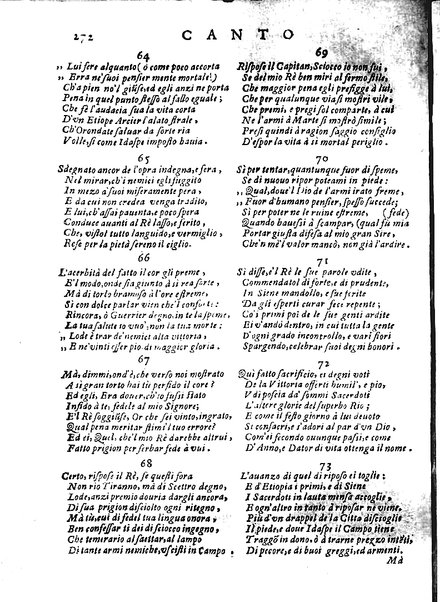 272 CANTO
64
„ Lui fere alquanto (ò come poco accorta
„ Erra ne' suoi pensier mente mortale!)
Ch'a pien no'l giunse, ed egli anzi ne porta
Pena in quel punto stesso al fallo eguale;
Che se l'audacia sua la vita corta
D'vn Etiope Arcier l'alato strale,
Ch'Orondate saluar da forte ria
Volle, sì come Idaspe imposto hauia.
65
Sdegnato ancor de l'opra indegna, e fera,
Nel mirar, ch'i nemici egli fuggito
In mezo a' suoi miseramente pera,
E da cui non credea venga tradito,
E lui, ch'assai pauenta, e poco spera
Conduce auanti al Rè lasso, e ferito,
Che, visto l tutto languido, e vermiglio,
Rese per la pietà sereno il ciglio.
66
L'acerbità del fatto il cor gli preme,
E'l modo, onde fia giunto à sì rea sorte,
Mà di torlo bramoso à l'ore estreme,
Sì con dolce parlar vien che'l conforte:
Rincora, ò Guerrier degno, in te la speme,
La tua salute io vuò, non la tua morte:
„ Lode è trar de' nemici alta vittoria,
„ E ne' vinti esser pio di maggior gloria.
67
Mà, dimmi, ond'è, che verso noi mostrato
A sì gran torto hai tù perfido il core?
Ed egli, Era douer, ch'io fussi stato
Infido à te, fedele al mio Signore;
E'l Rè soggiunse, Or che sei vinto, ingrato,
Qual pena meritar stimi l tuo errore?
Ed ei, Quel, che'l mio Rè darebbe altrui,
Fatto prigion per serbar fede à tui.
68
Certo, rispose il Rè, se questi fora
Non rio Tiranno, mà di Scettro degno,
Lode, anzi premio douria dargli ancora,
Di sua prigion disciolto ogni ritegno,
Mà tù, cui di fedel tua lingua onora,
Ben confessar ti dei di sciocco ingegno,
Che temerario al saltar, al lampo
Di tante armi nemiche, vscisti in Campo.
69
Rispose il Capitan, Sciocco io non fui,
Se del mio Rè ben miri al fermo stile,
Che maggior pena egli prefigge à lui,
Che per qualunque via si mostri vile,
Che premi, e pregi sol comparte, à cui
Ne l'armi à Marte si mostrò simile;
Presi quindi à ragion saggio consiglio
D'espor la vita à sì mortal periglio.
70
Sì per tentar, quantunque fuor di speme,
Se di nuouo risor poteami in piede:
„ Qual, dou'il fio de l'armi irato freme,
„ Fuor d'humano pensier, spesso succede;
Sì per poter ne le ruine estreme, (fede)
Quando bauessi à scampar, (qual fù mia
Portar giusta difesa al mio gran Sire,
Che'n me'l valor mancò, non già l'ardire.
71
Sì disse, è'l Rè le sue parole vdite,
Commendatol di forte, e di prudente,
In Siene mandollo, e sue ferite
Da gli esperti curar fece repente;
Co'i primi poi de le sue genti ardite
Ei v'andò dentro, in cui tutta la gente
D'ogni grado incontrollo, e vari fiori
Spargendo, celebrar suoi degni honori.
72
Quì fatto sacrificio, ei degni voti
De la Vittoria offerti humil', e pio,
V di poscia da' sommi Sacerdoti
L'altere glorie del superbo Rio;
E come il festo giorno à lui deuoto
Si consacri, e s'adori al par d'vn Dio,
Com'ei secondo ouunque passi, e come
D'Anno, e Dator di vita ottenga il nome.
73
L'auanzo di quel dì riposo ei toglie:
E d'Etiopia i primi, e di Siene
I Sacerdoti in lauta mensa accoglie,
E ogn'altro in tanto à riposar ne viene,
Più d'vn drappel de la Città discioglie
Il piede, e doue Idaspe il Campo tiene
Traggon in dono, ò à trarne prezzo intesi,
Di pecore, e di buoi greggi, ed armenti.
Mà